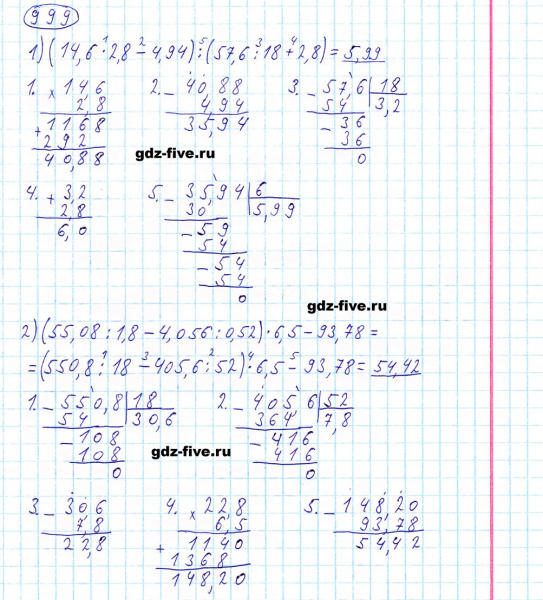 999
1) (14,6 · 2,8 - 4,94) : (57,6 : 18 + 2,8) = 5,99
1. × 14,6
2,8
+ 1168
292
40,88
2. - 40,88
4,94
35,94
3. - 57,6 | 18
54 | 3,2
- 36
36
0
gdz-five.ru
4. + 3,2
2,8
6,0
5. - 35,94 | 6
30 | 5,99
- 59
54
- 54
54
0
gdz-five.ru
2) (55,08 : 1,8 - 4,056 : 0,52) · 6,5 - 93,78 =
= (550,8 : 18 - 405,6 : 52) · 6,5 - 93,78 = 54,42
1. - 550,8 | 18
54 | 30,6
- 108
108
0
2. - 405,6 | 52
364 | 7,8
- 416
416
0
gdz-five.ru
3. - 30,6
7,8
22,8
4. × 22,8
6,5
+ 1140
1368
148,20
5. - 148,20
93,78
54,42